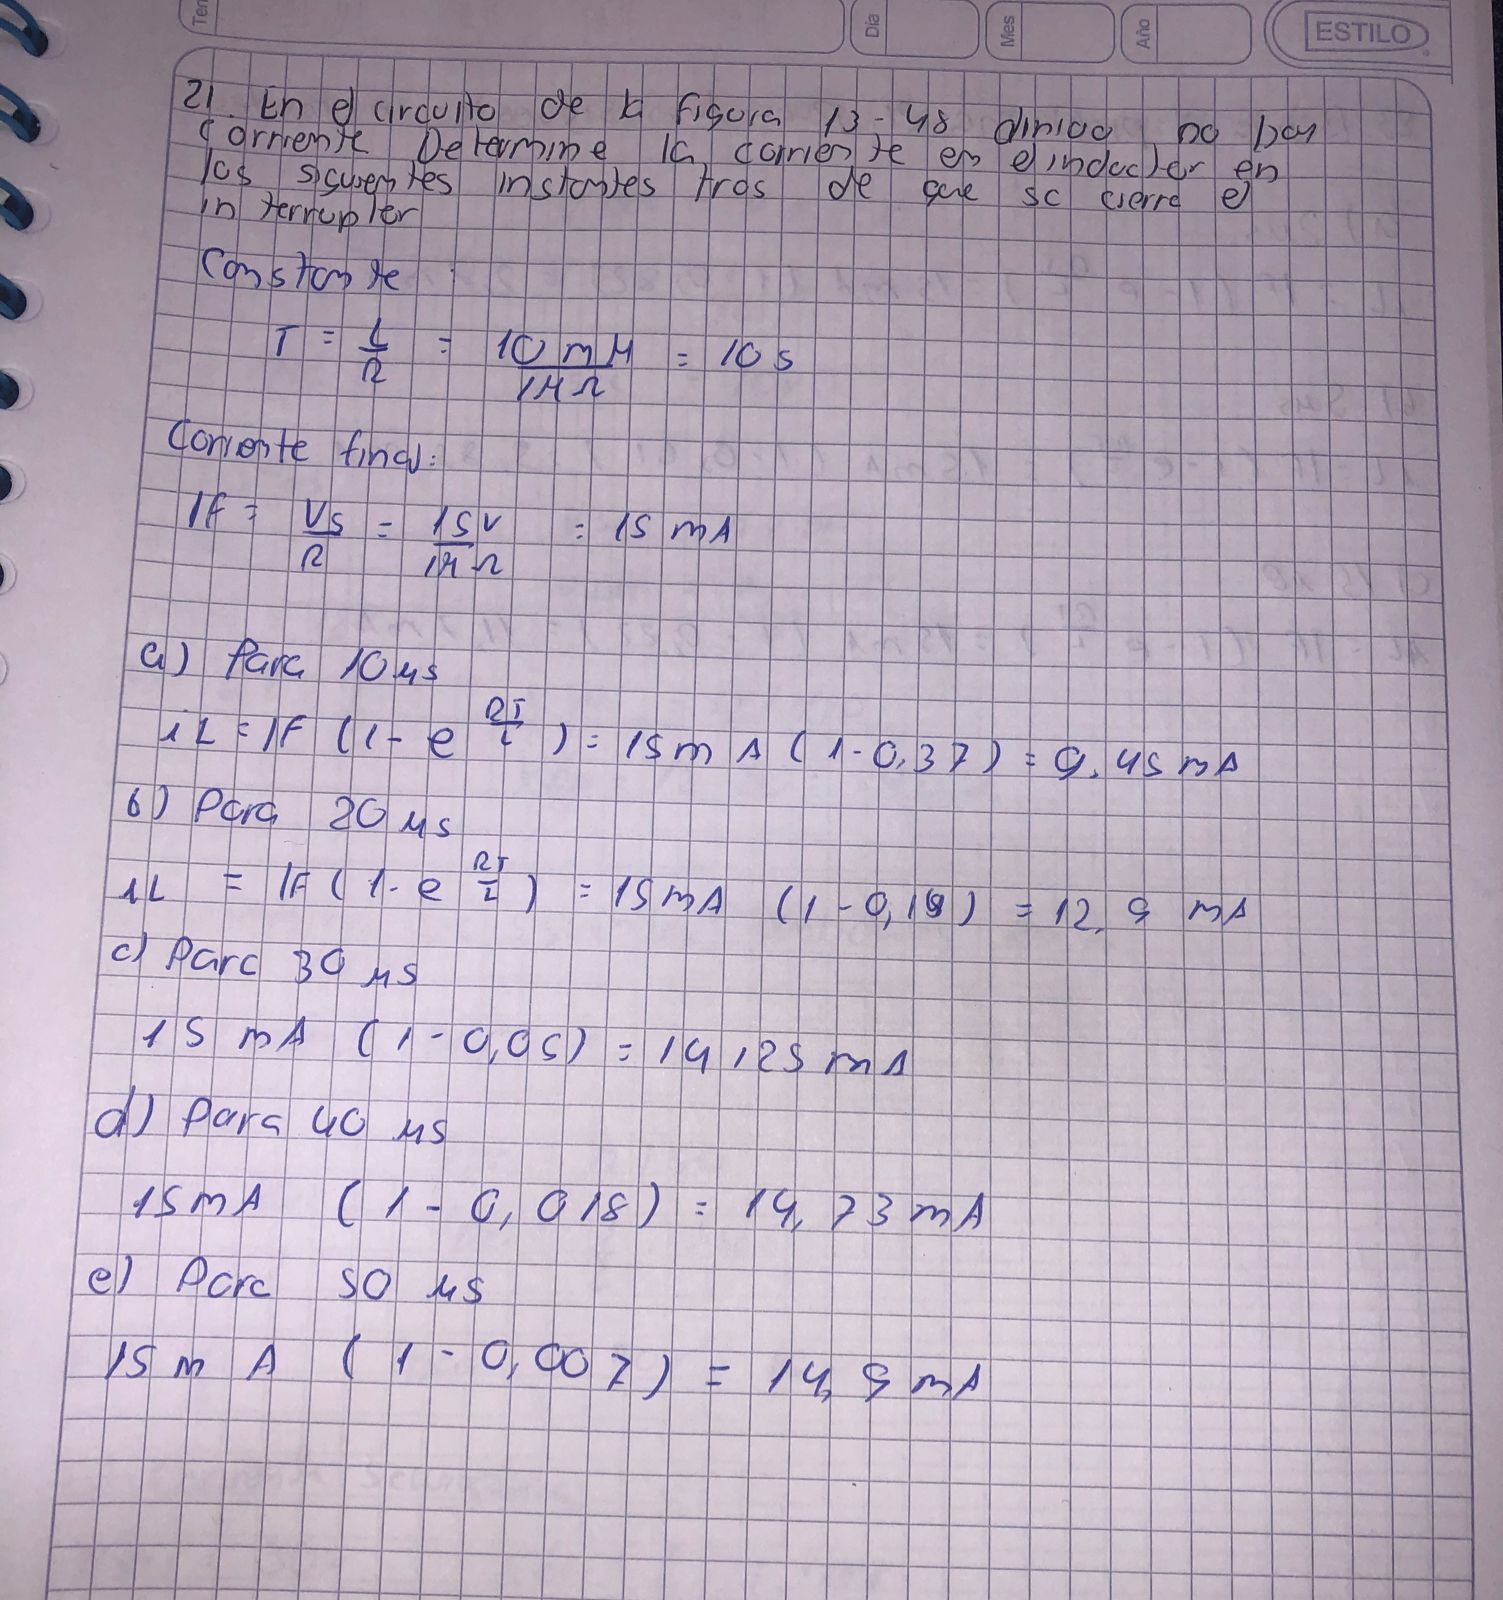 Dia Mes Año ESTILO
21. En el circuito de la figura 13-48 dinicio no hay
Corriente Determine la corriente en el inductor en
los siguientes instantes tras de que se cierre el
interrupter
Constante
T = L/R = 10 mH/1MΩ = 10 s
Corriente final:
IF = Vs/R = 15V/1MΩ = 15 mA
a) Para 10 μs
iL = IF (1 - e RT/L) = 15 mA (1-0,37) = 9.45 mA
b) Para 20 μs
iL = IF (1 - e RT/L) = 15 mA (1-0,19) = 12,9 mA
c) Para 30 μs
15 mA (1-0,05) = 14,25 mA
d) Para 40 μs
15 mA (1 - 0,018) = 14,73 mA
e) Para 50 μs
15 mA (1 - 0,007) = 14,9 mA